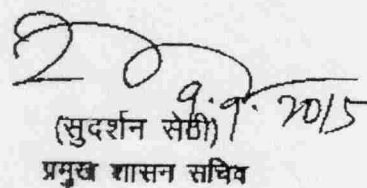 9.9.2015
(सुदर्शन सेठी)
प्रमुख शासन सचिव